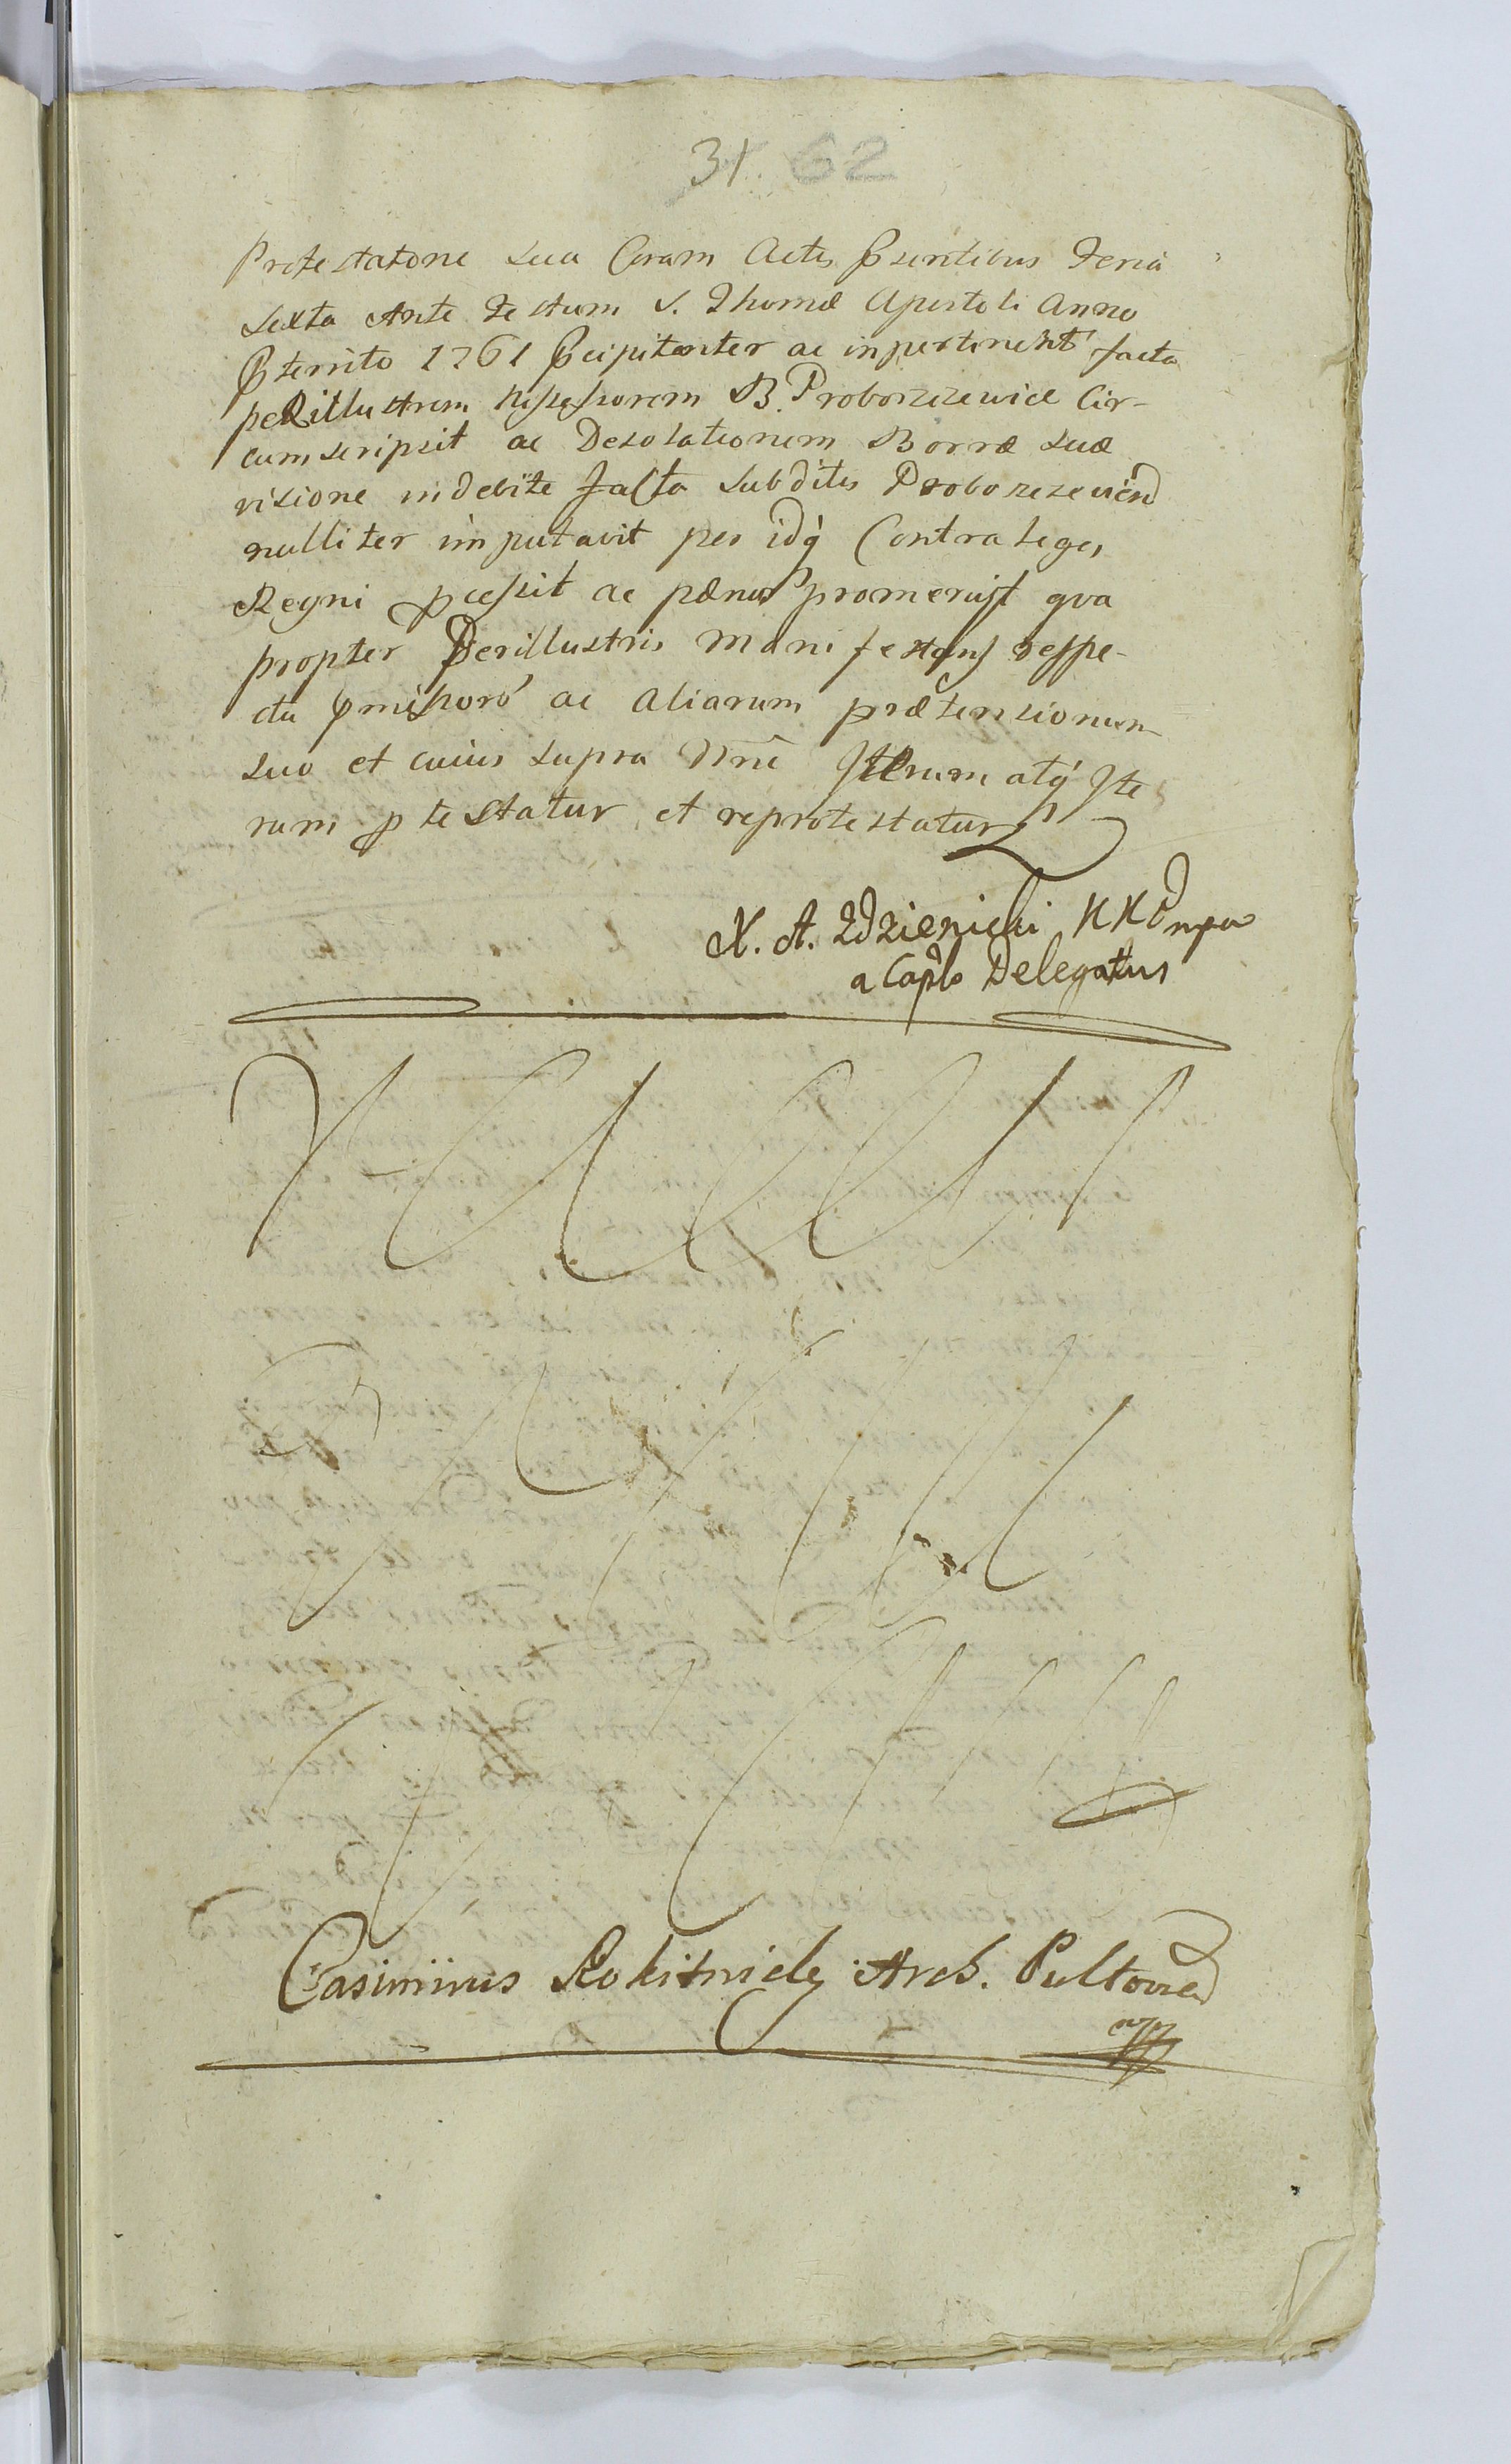 31. 62
Protestatone sua Coram Actis pūntibus Feria
Sexta Ante Festum S. Thomæ Apostoli Anno
pterito 1761 pcipitanter ac inpertinent facta
peRillustrem Possessorem B. Proborzczewice Cir-
cumscripsit ac Desolationem Borræ suæ
visione indebite facta subditis Proborzczevien
nulliter imputavit per idq́ Contra leges
Regni pcessit ac pænas promeruit qva
propter Perillustris Manifestans respe-
ctu pmissorō ac aliarum prætensionum
suo et cuius supra Nnē Iterum atq́ Ite
rum ptestatur et reprotestatur
X. A. Zdzienicki KKP mpa
a Caplo Delegatus
Casimirus Rokitnicky Arch. Pultovien
mpp